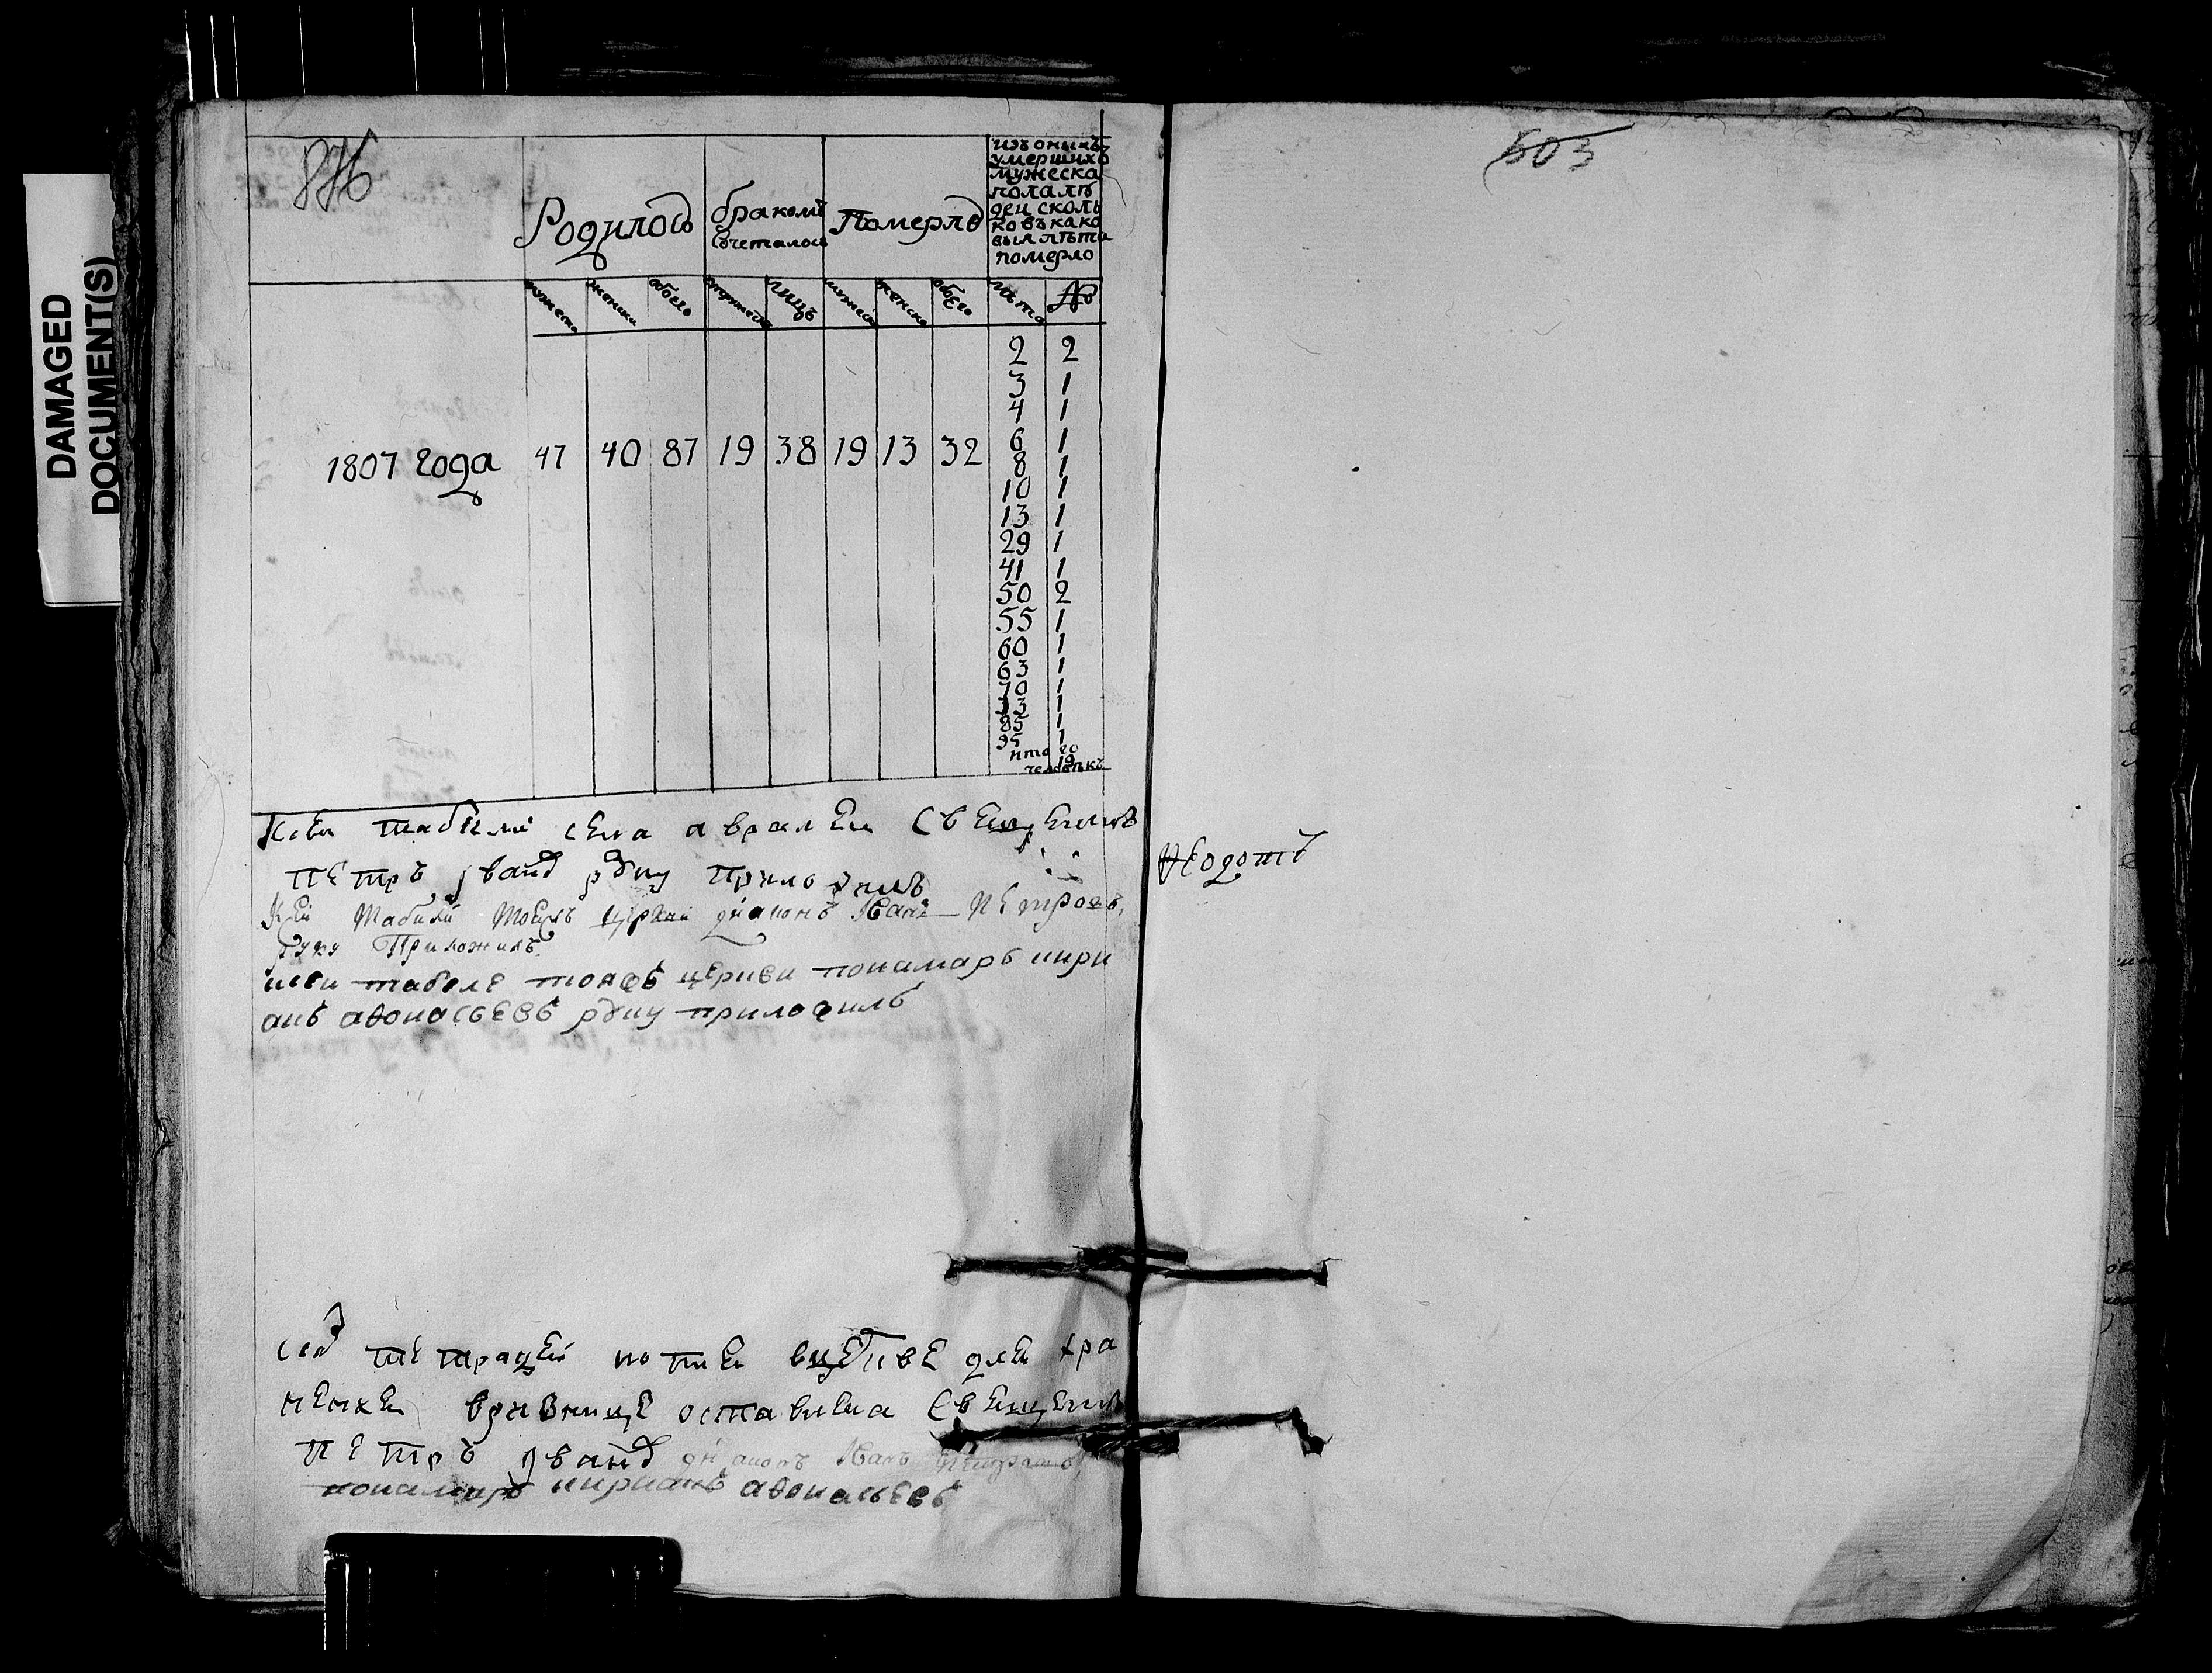 DAMAGED
DOCUMENT(S)
603
Родилось
бракомъ
сочеталось
Померлѡ
изъ оныхъ
умершихъ
мужеска
пола лю
дей сколь
ко въ како
выя лѣта
померло
мужеска женска обоего супружествъ лицъ мужеска женска обоего лѣта №
1807 года 47 40 87 19 38 19 13 32
2 2
3 1
4 1
6 1
8 1
10 1
13 1
29 1
41 1
50 2
55 1
60 1
63 1
70 1
1
85 1
95 1
итого
19
человѣкъ
табели села авралеи священникъ
петръ иванд руку приложилъ Ѳедотъ
Ксей табели тоежъ церкви диаконъ Иванъ Петровъ,
руку Приложилъ.
ксеи табеле тояжъ церкви понамарь кири
анъ аѳонасьевъ руку приложилъ
тетрадей копии вцеркве для хра
нении вризнице оставлена священникъ
петръ иванд диаконъ Иванъ Петровъ,
понамарь кирианъ аѳонасьевъ